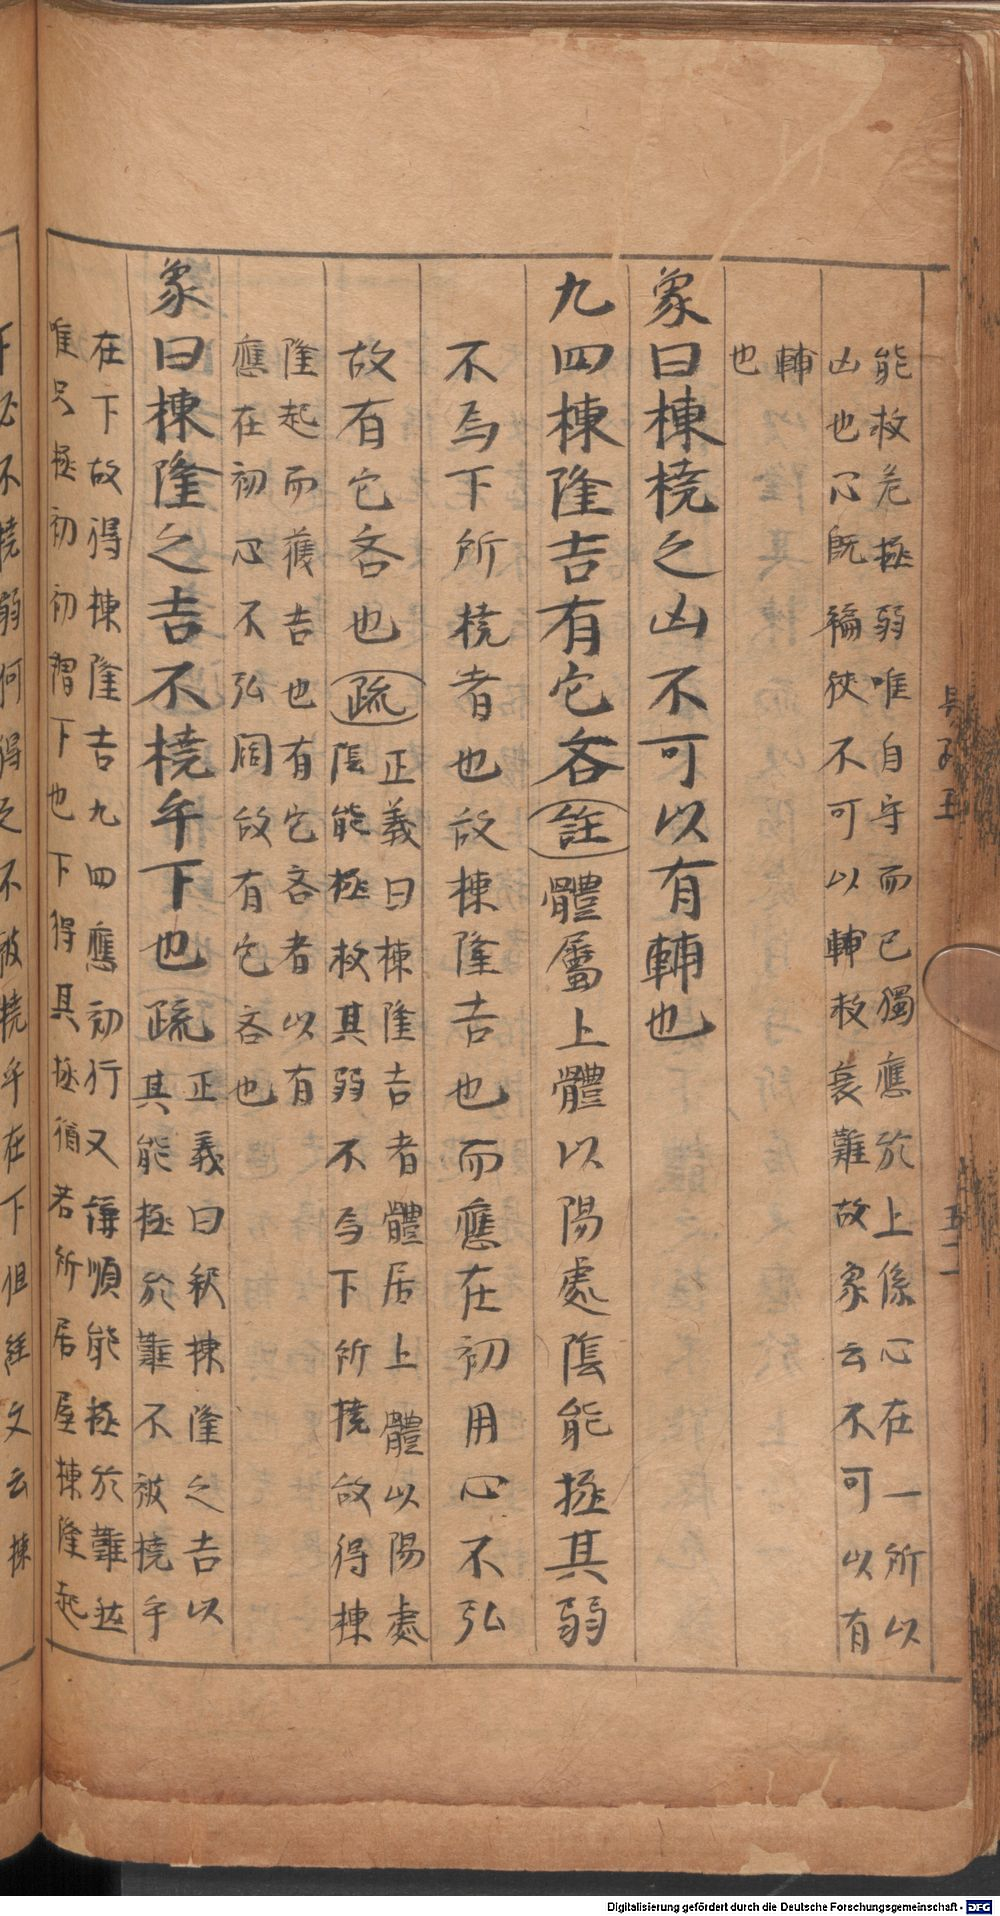 能救危拯弱唯自守而已獨應於上係心在一所以
凶也心既褊狹不可以輔救衰難故象云不可以有
輔
也
象曰棟橈之凶不可以有輔也
九四棟隆吉有它吝註體屬上體以陽處陰能拯其弱
不為下所橈者也故棟隆吉也而應在初用心不弘
故有它吝也疏
正義曰棟隆吉者體居上體以陽處
陰能拯救其弱不為下所撓故得棟
隆起而獲吉也有它吝者以有
應在初心不弘闊故有它吝也
象曰棟隆之吉不橈乎下也疏
正義曰釈棟隆之吉以
其能拯於難不被橈乎
在下故得棟隆吉九四應初行又謙順能拯於難然
唯只拯初初謂下也下得其拯猶若所居屋棟隆起
下必不橈弱何得之不被橈乎在下但經文云棟
五二
Digitalisierung gefördert durch die Deutsche Forschungsgemeinschaft - DFG